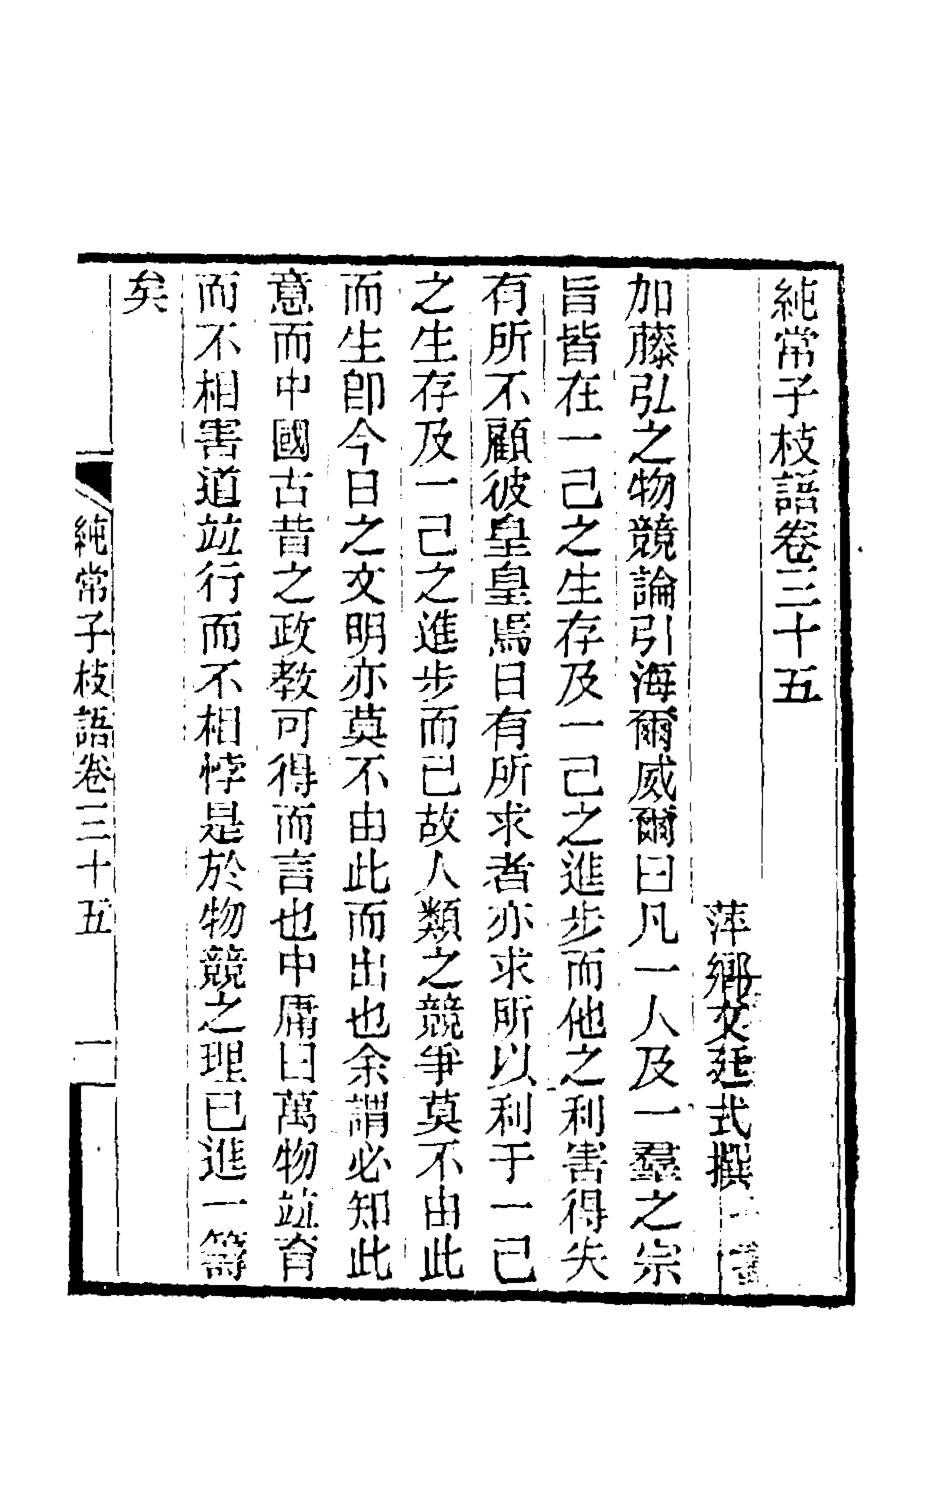 純常子枝語卷三十五
萍鄉文廷式撰
加藤弘之物競論引海爾威爾曰凡一人及一羣之宗
旨皆在一己之生存及一己之進步而他之利害得失
有所不顧彼皇皇焉日有所求者亦求所以利于一己
之生存及一己之進步而已故人類之競爭莫不由此
而生卽今日之文明亦莫不由此而出也余謂必知此
意而中國古昔之政教可得而言也中庸曰萬物竝育
而不相害道竝行而不相悖是於物競之理已進一籌
矣
純常子枝語卷三十五
一